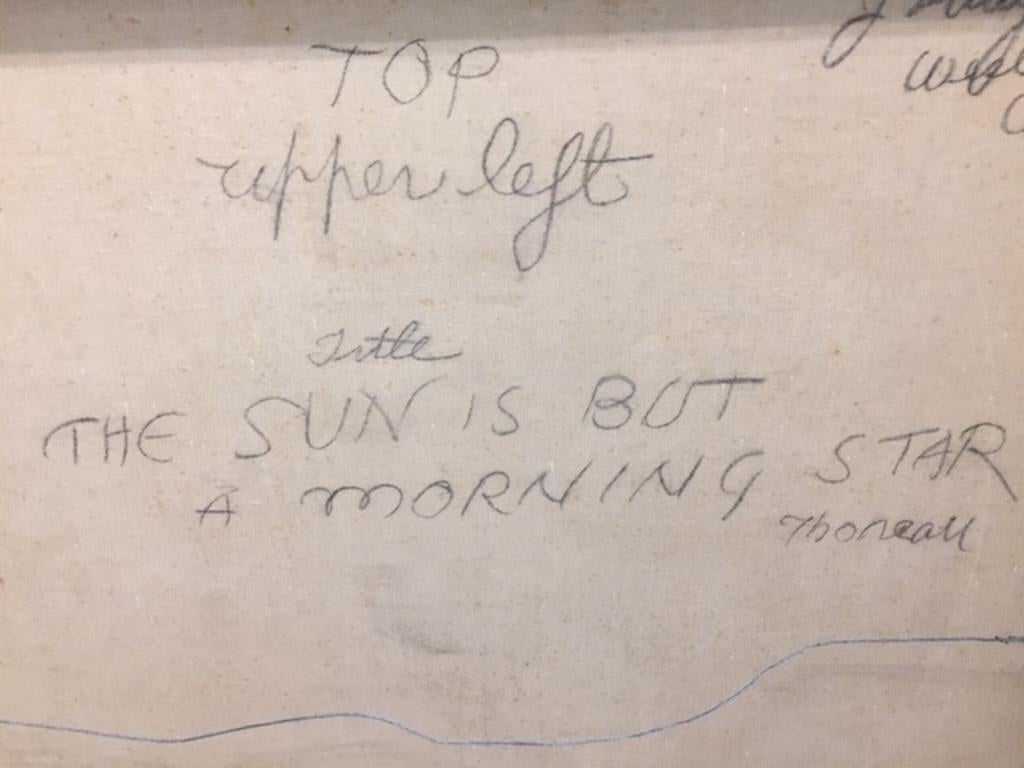 TOP
upper left
Title
THE SUN IS BUT
A MORNING STAR
Thoreau